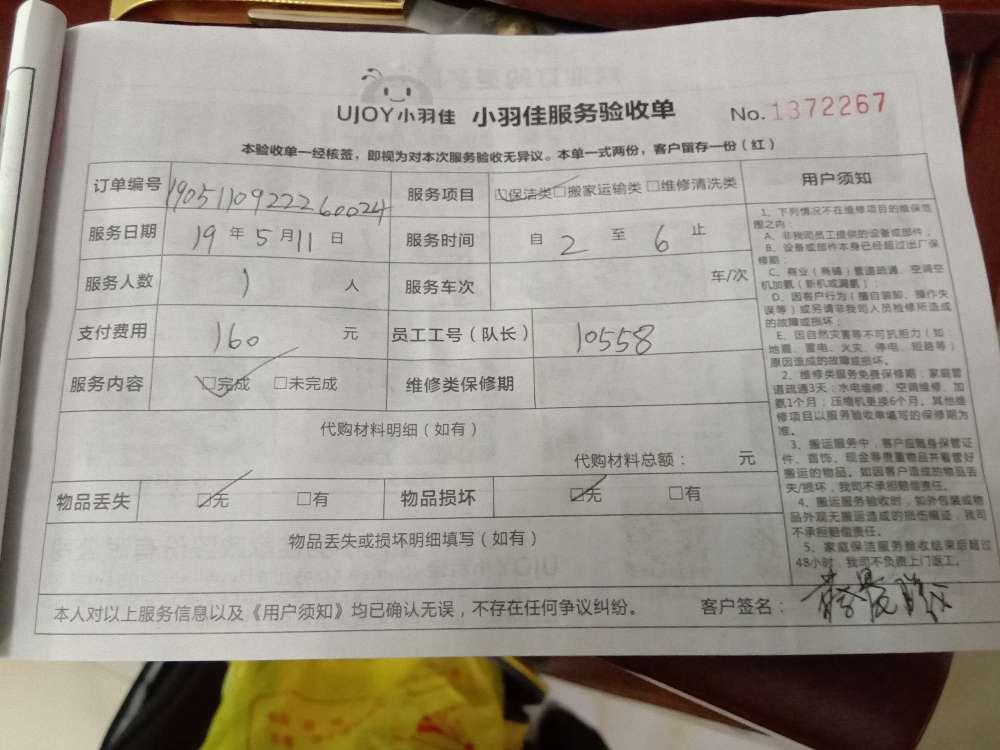 UJOY小羽佳 小羽佳服务验收单 No.1372267
本验收单一经核签，即视为对本次服务验收无异议。本单一式两份，客户留存一份（红）
订单编号 19051109222260024 服务项目 □保洁类□搬家运输类□维修清洗类
服务日期 19年5月11日 服务时间 自2至6止
服务人数 1人 服务车次 车/次
支付费用 160元 员工工号（队长） 10558
服务内容 □完成 □未完成 维修类保修期
代购材料明细（如有）
代购材料总额： 元
物品丢失 □无 □有 物品损坏 □无 □有
物品丢失或损坏明细填写（如有）
用户须知
1、下列情况不在维修项目的维保范
围之内：
A、非我司员工提供的设备或部件；
B、设备或部件本身已经超过出厂保
修期；
C、商业（商铺）管道疏通、空调空
机加氨（新机或漏氨）；
D、因客户行为（擅自装卸、操作失
误等）或另请非我司人员检修所造成
的故障或损坏；
E、因自然灾害等不可抗拒力（如
地震、雷电、火灾、停电、短路等）
原因造成的故障或损坏。
2、维修类服务免费保修期：家庭管
道疏通3天；水电维修、空调维修、加
氨1个月；压缩机更换6个月。其他维
修项目以服务验收单填写的保修期为
准。
3、搬运服务中，客户应随身保管证
件、首饰、现金等贵重物品并看管好
搬运的物品，如因客户造成的物品丢
失/损坏，我司不承担赔偿责任。
4、搬运服务验收时，如外包装或物
品外观无搬运造成的损伤痕迹，我司
不承担赔偿责任。
5、家庭保洁服务验收结束后超过
48小时，我司不负责上门返工。
本人对以上服务信息以及《用户须知》均已确认无误，不存在任何争议纠纷。 客户签名：